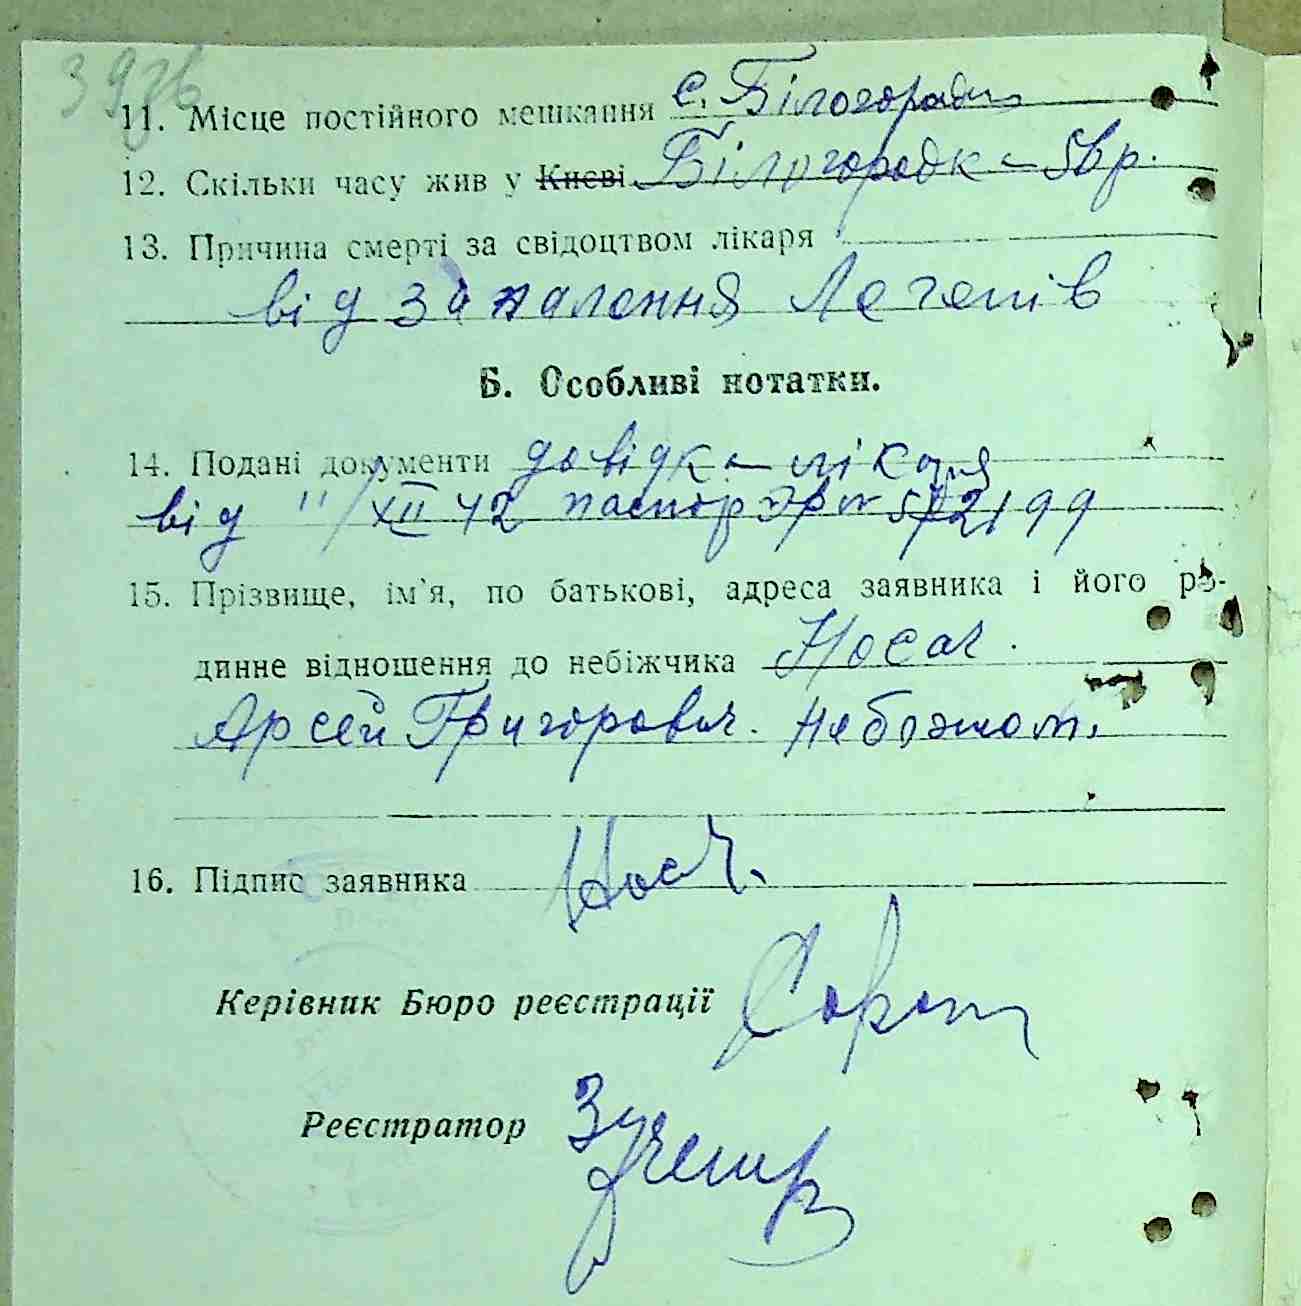 11. Місце постійного мешкання с. Білогородка
12. Скільки часу жив у Києві Білогородка
13. Причина смерті за свідоцтвом лікаря
від запалення Легенів
Б. Особливі нотатки.
14. Подані документи довідка лікаря
від 11/XII 42 паспорт
15. Прізвище, ім'я, по батькові, адреса заявника і його ро-
динне відношення до небіжчика Носач.
Арсей Григорович.
16. Підпис заявника Носач.
Керівник Бюро реєстрації
Реєстратор